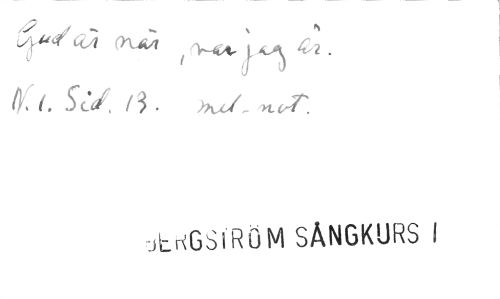 Gud är när, var jag är.
N. 1. Sid. 13. mel. not.
BERGSTRÖM SÅNGKURS I